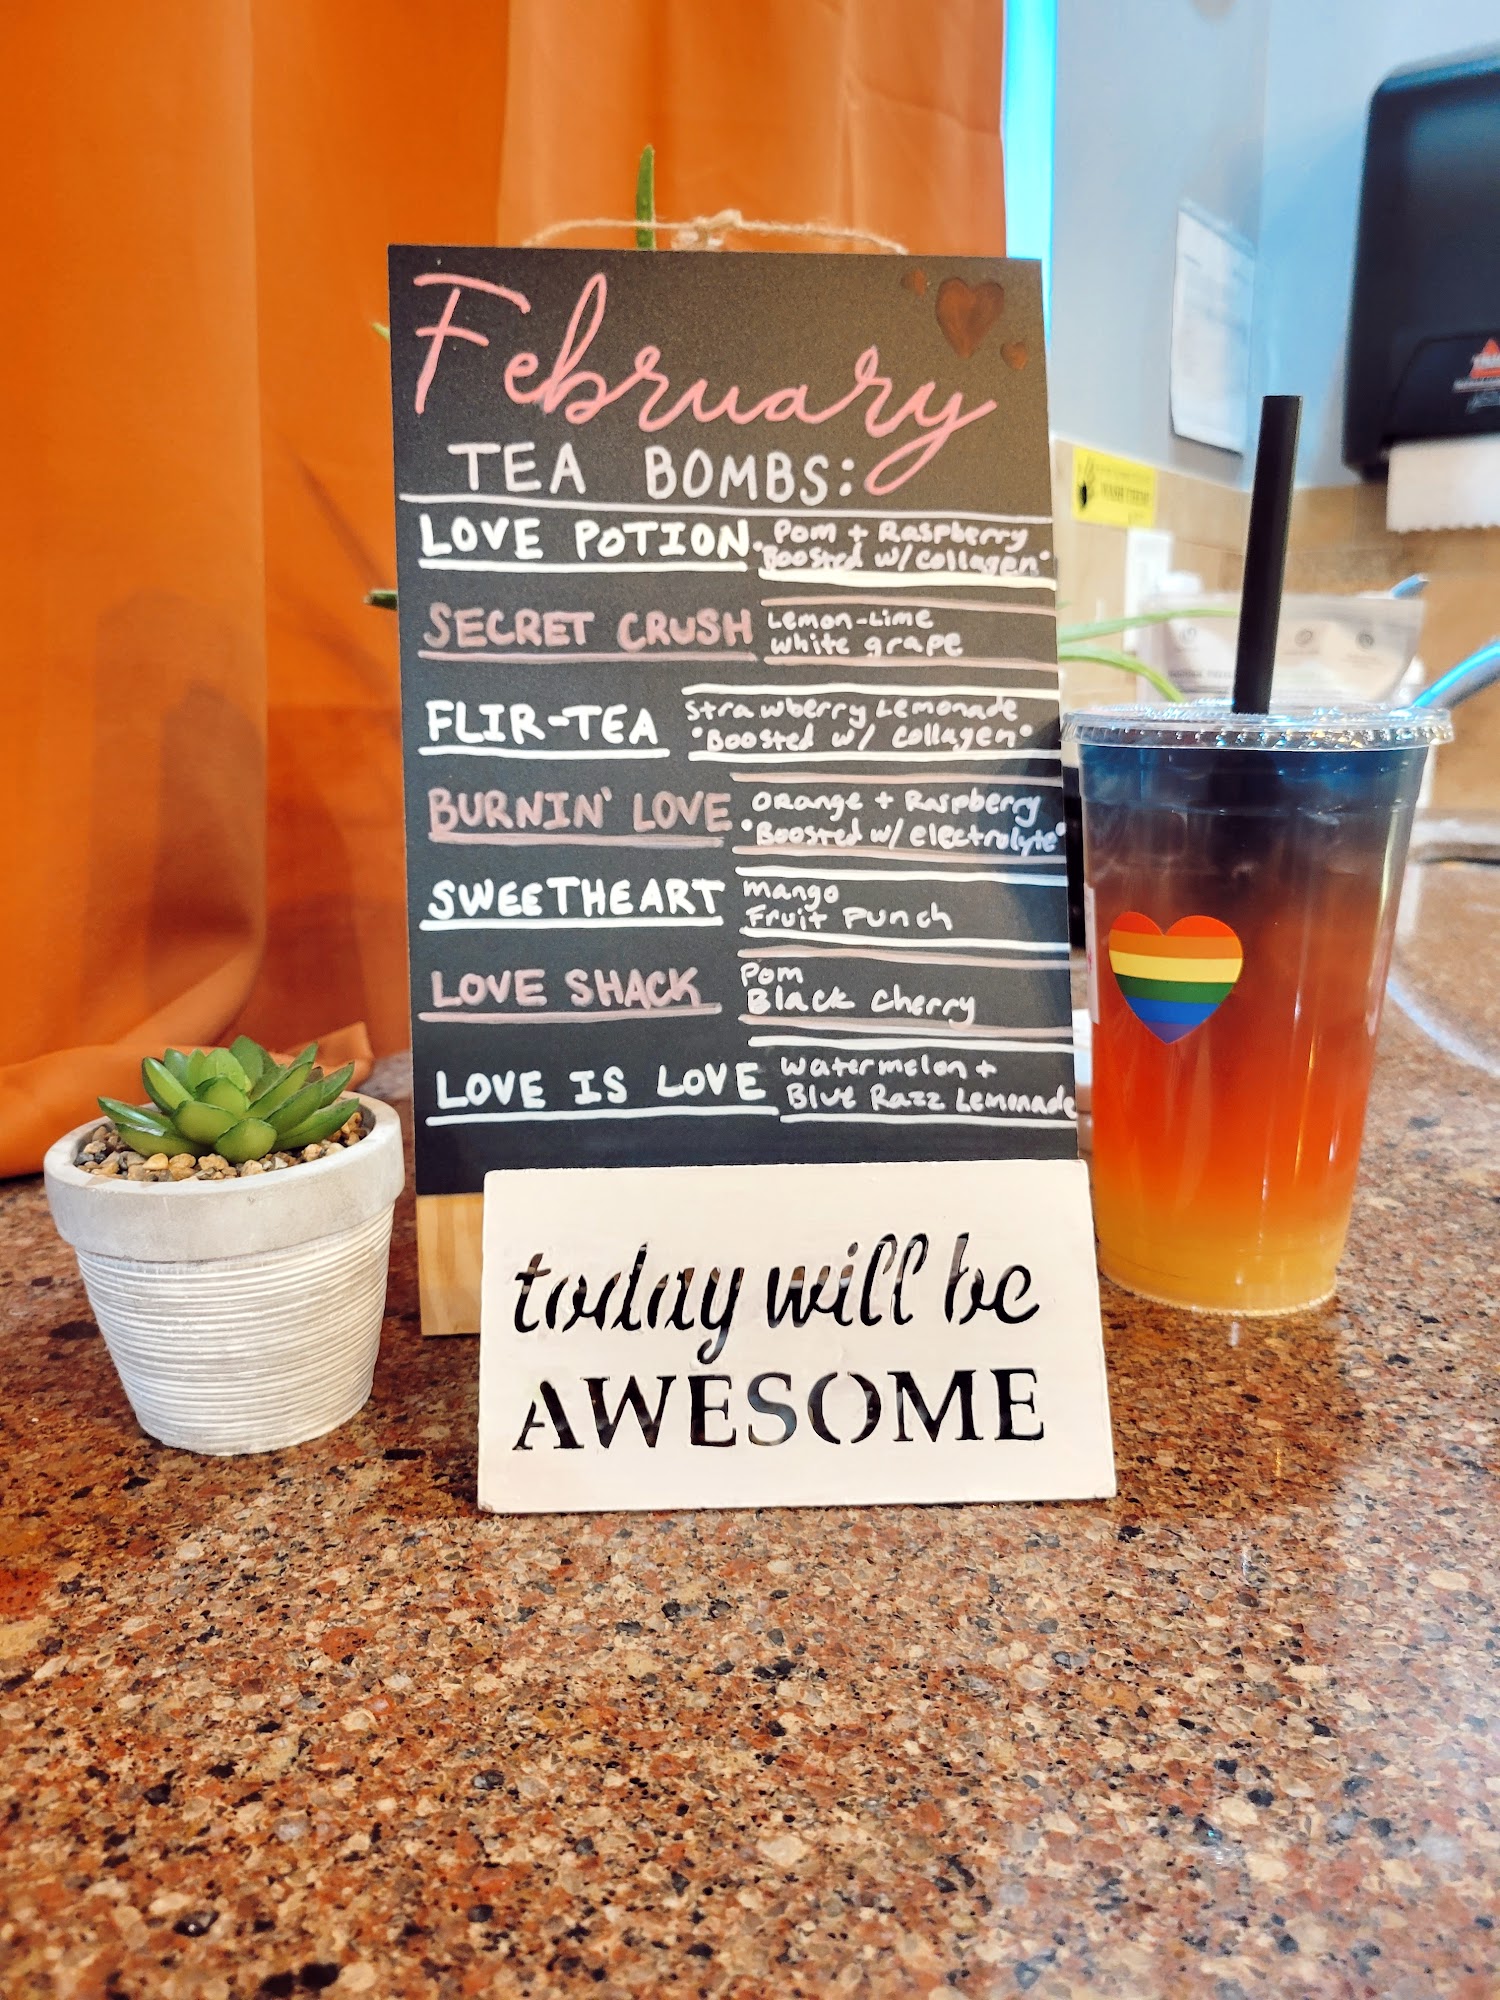 February
TEA BOMBS:
LOVE POTION
Pom + Raspberry
"Boosted w/ collagen"
SECRET CRUSH
Lemon-Lime
White grape
FLIR-TEA
Strawberry Lemonade
"Boosted w/ collagen"
BURNIN' LOVE
Orange + Raspberry
"Boosted w/ electrolyte"
SWEETHEART
Mango
Fruit Punch
LOVE SHACK
Pom
Black Cherry
LOVE IS LOVE
Watermelon +
Blue Razz Lemonade
today will be
AWESOME